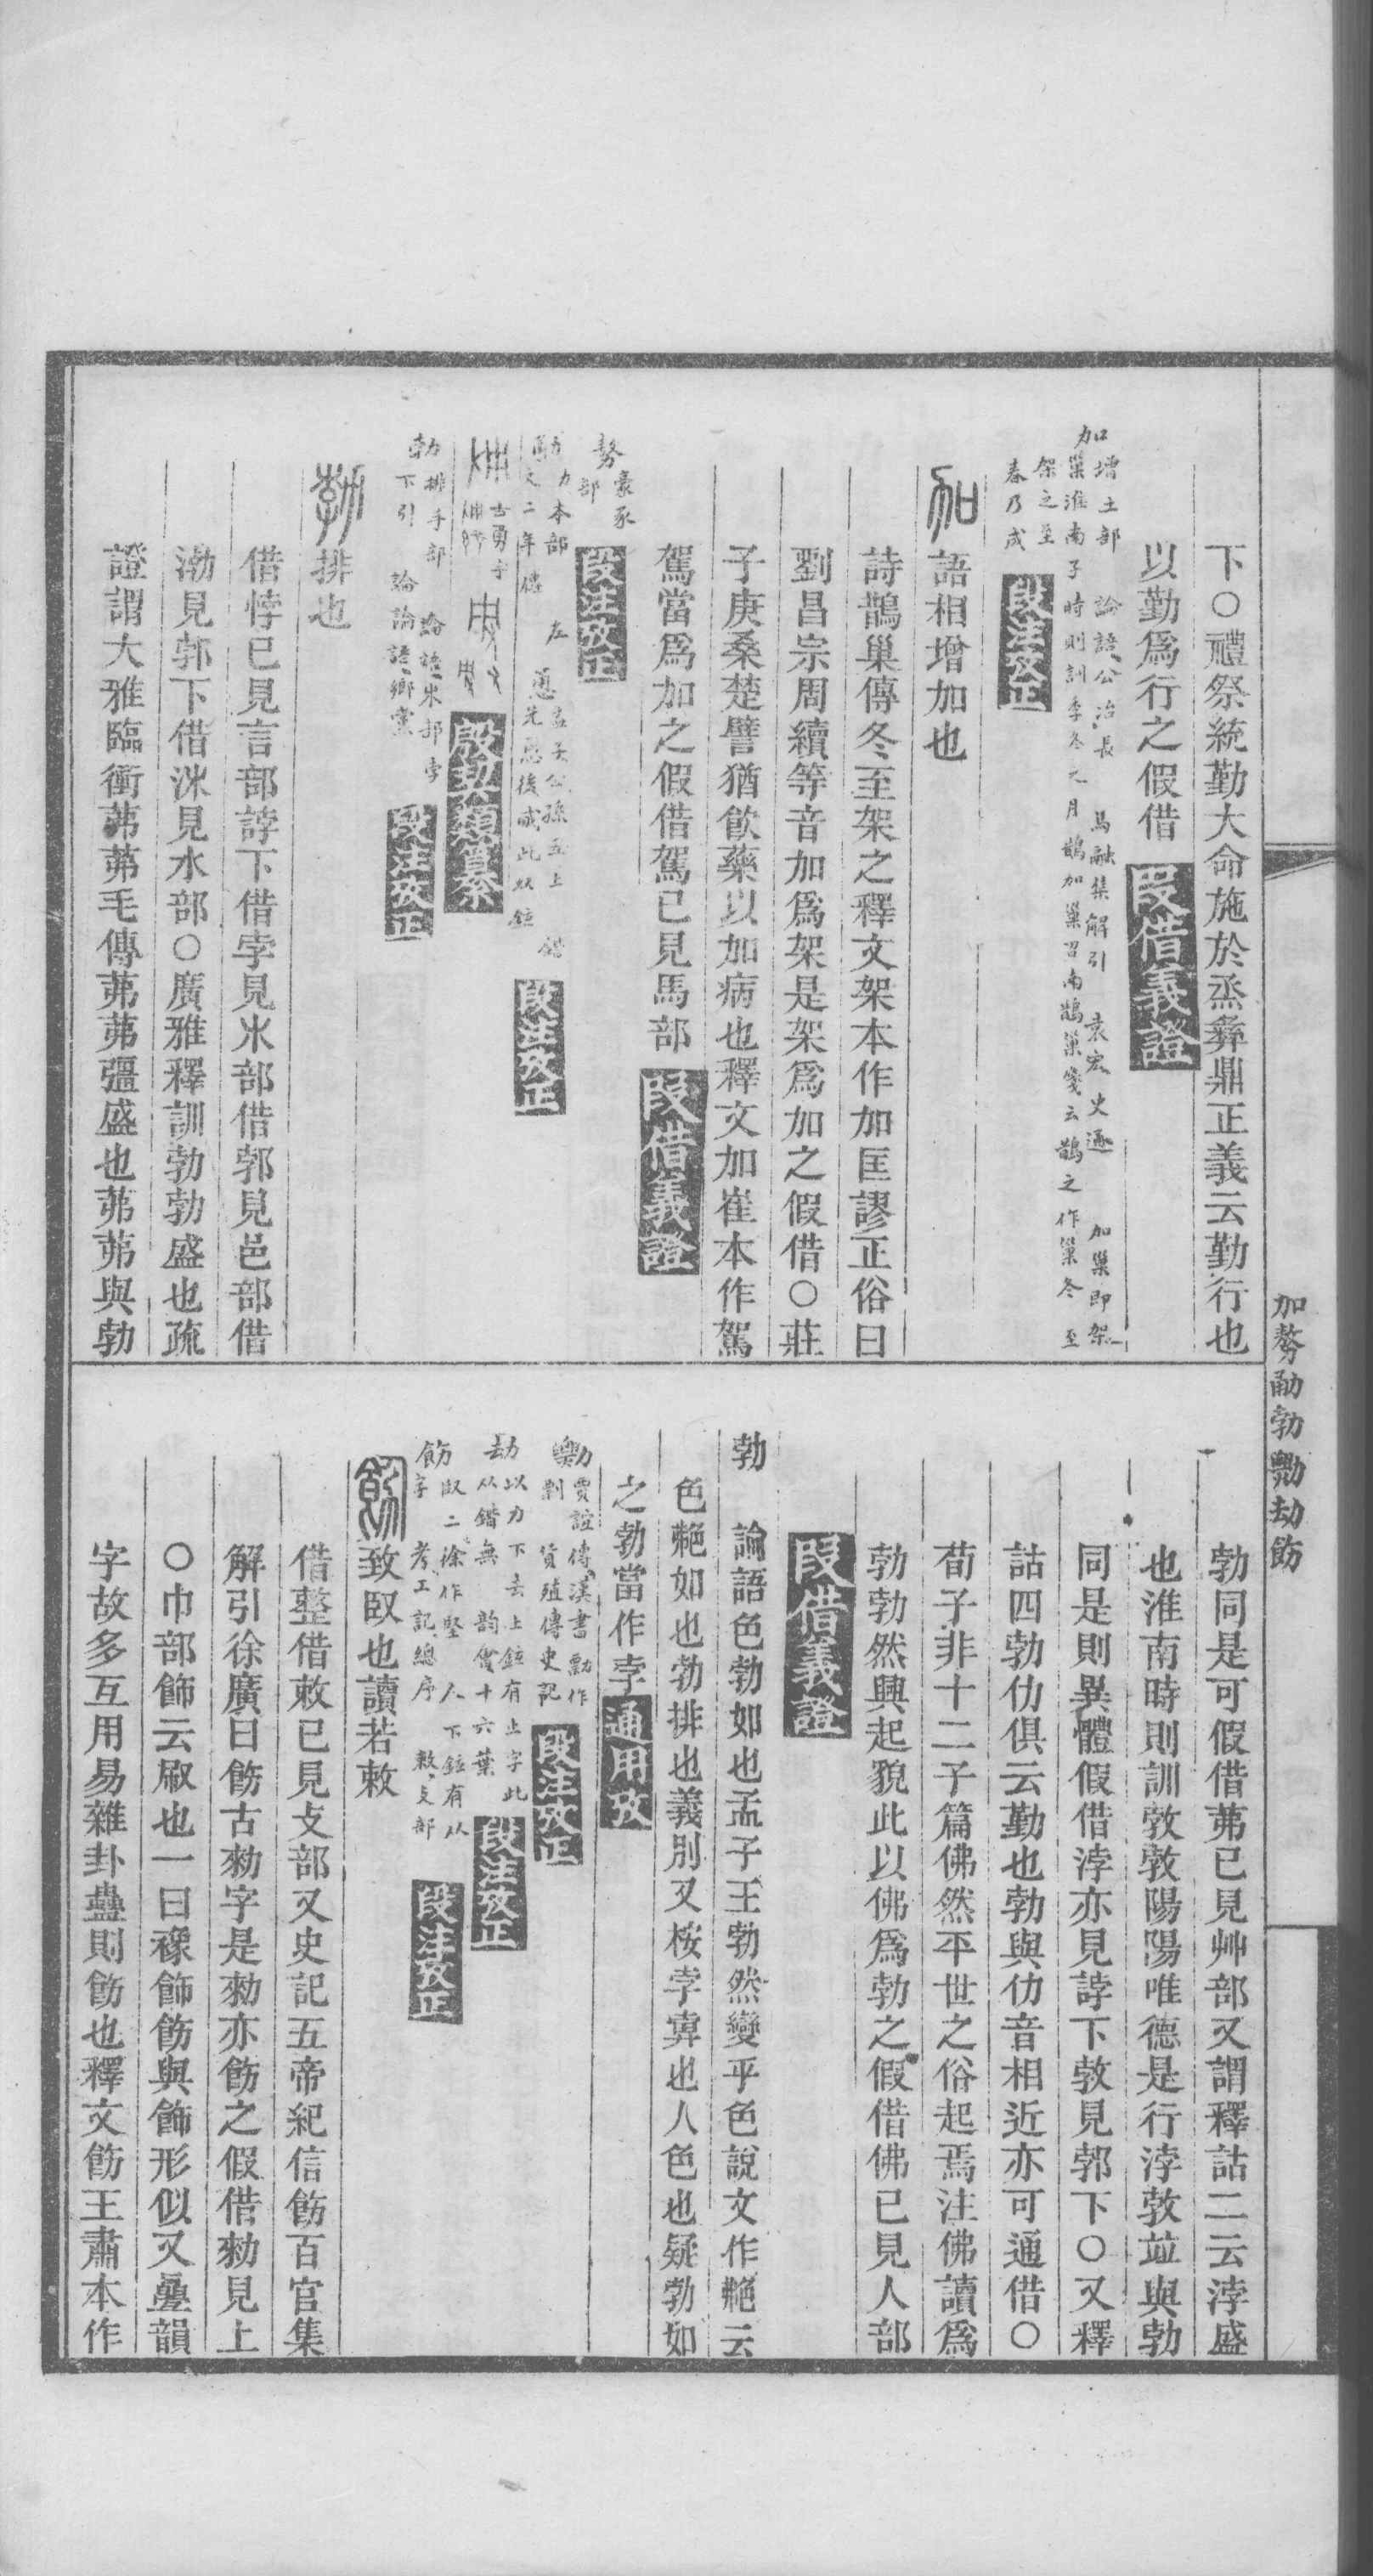 下○禮祭統勤大命施於烝彝鼎正義云勤行也
以勤爲行之假借 段借義證
加 增土部 論語公冶長 馬融集解引 袁宏 史通 加巢即架
巢淮南子時則訓季冬之月鵲加巢召南鵲巢箋云鵲之作巢冬至
架之至
春乃成 段注攷正
加 語相增加也
詩鵲巢傳冬至架之釋文架本作加匡謬正俗曰
劉昌宗周續等音加爲架是架爲加之假借○莊
子庚桑楚譬猶飮藥以加病也釋文加崔本作駕
駕當爲加之假借駕已見馬部 段借義證
勢 豪豕
部 段注攷正
力本部 左
文二年 孟子公孫丑上 段注攷正
古勇字
殷契類纂
勃 排手部 論語 部孛
下引 論論語鄉黨 段注攷正
勃 排也
借悖已見言部誖下借孛見𣎵部借郣見邑部借
渤見郣下借㳈見水部○廣雅釋訓勃勃盛也疏
證謂大雅臨衝茀茀毛傳茀茀彊盛也茀茀與勃
加勢勈勃勦劫飭
勃同是可假借茀已見艸部又謂釋詁二云浡盛
也淮南時則訓敦敦陽陽唯德是行浡敦竝與勃
同是則異體假借浡亦見誖下敦見郣下○又釋
詁四勃仂俱云勤也勃與仂音相近亦可通借○
荀子非十二子篇佛然平世之俗起焉注佛讀爲
勃勃然興起貌此以佛爲勃之假借佛已見人部
段借義證
勃 論語色勃如也孟子王勃然變乎色說文作艴云
色艴如也勃排也義別又桉孛𡴀也人色也疑勃如
之勃當作孛 通用攷
勦 賈誼傳漢書勦作
剿 貨殖傳史記 段注攷正
劫 以力下去上鉉有止字此
从鍇無 韵會十六葉 段注攷正
飭 㪉二徐作堅 人下鉉有从
字 考工記總序 敕攴部 段注攷正
飭 致㪉也讀若敕
借整借敕已見攴部又史記五帝紀信飭百官集
解引徐廣曰飭古勑字是勑亦飭之假借勑見上
○巾部飾云㕞也一曰襐飾飭與飾形似又疊韻
字故多互用易雜卦蠱則飭也釋文飭王肅本作